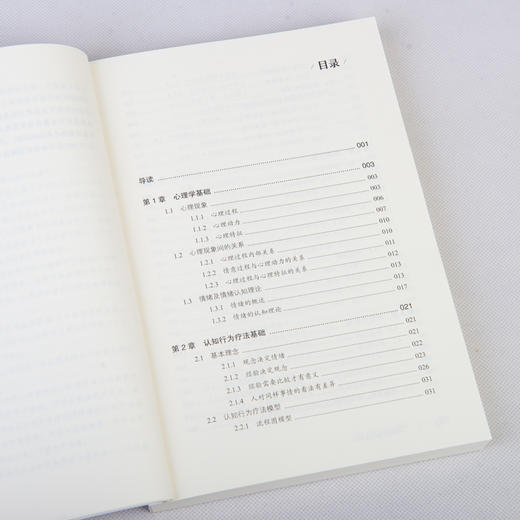 / 目录 /
导读 001
第 1 章 心理学基础 003
1.1 心理现象 003
1.1.1 心理过程 003
1.1.2 心理动力 006
1.1.3 心理特征 007
1.2 心理现象间的关系 010
1.2.1 心理过程内部关系 010
1.2.2 情意过程与心理动力的关系 011
1.2.3 心理过程与心理特征的关系 012
1.3 情绪及情绪认知理论 013
1.3.1 情绪的概述 013
1.3.2 情绪的认知理论 017
第 2 章 认知行为疗法基础 021
2.1 基本理念 021
2.1.1 观念决定情绪 021
2.1.2 经验决定观念 022
2.1.3 经验需要比较才有意义 023
2.1.4 人对同样事情的看法有差异 026
2.2 认知行为疗法模型 031
2.2.1 流程图模型 031